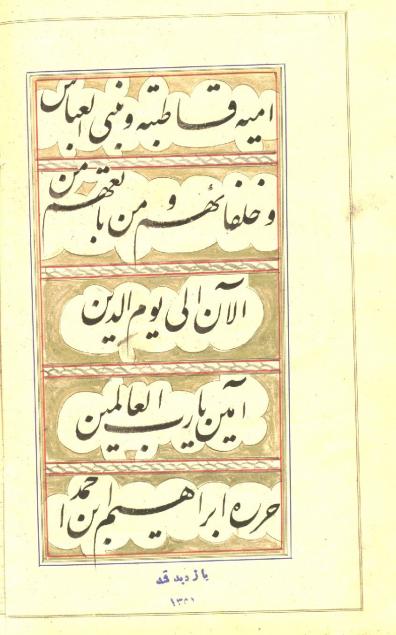 امیه قاطبه و بنی العباس
و خلفائهم و من بایعهم من
الآن الی یوم الدین
آمین یا رب العالمین
حرره ابراهیم ابن احمد
بازدید شد
۱۳۸۱